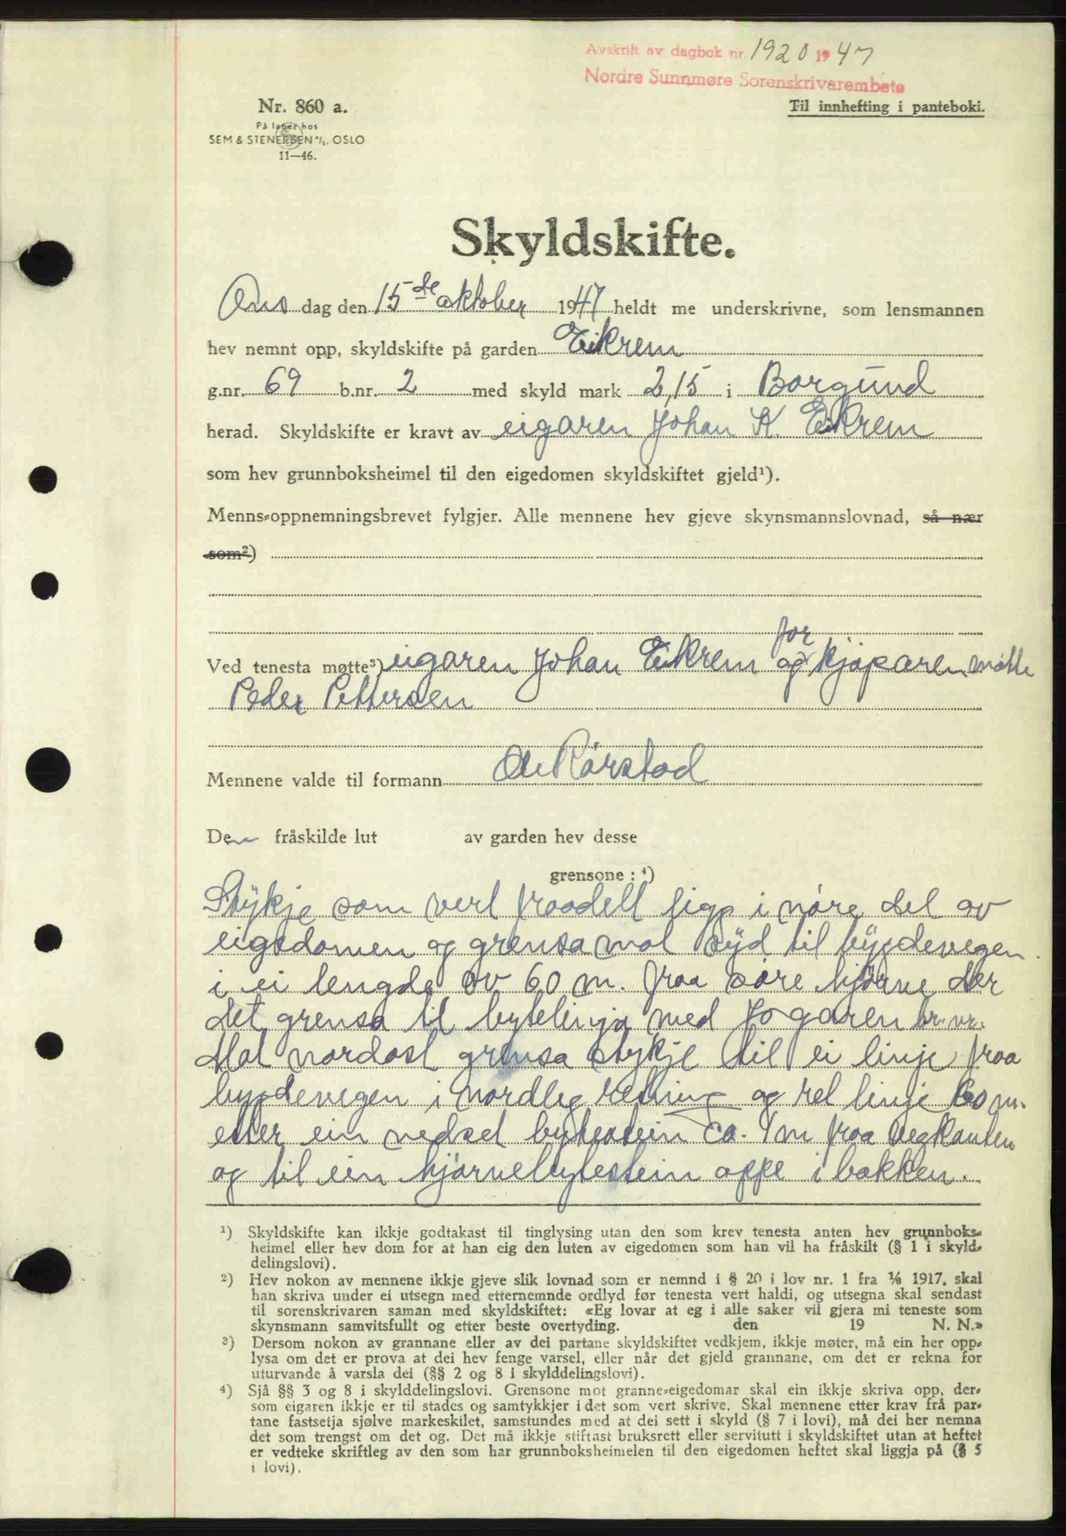 Avskrift av dagbok nr. 1920 1947
Nordre Sunnmøre Sorenskrivarembete
Nr. 860 a.
Til innhefting i panteboki.
På lager hos
SEM & STENERSEN A/S. OSLO
11—46.
Skyldskifte.
Ons dag den 15de oktober 1947 heldt me underskrivne, som lensmannen
hev nemnt opp, skyldskifte på garden Eikrem
g.nr. 69 b.nr. 2 med skyld mark 2,15 i Borgund
herad. Skyldskifte er kravt av eigaren Johan K. Eikrem
som hev grunnboksheimel til den eigedomen skyldskiftet gjeld¹).
Menns-oppnemningsbrevet fylgjer. Alle mennene hev gjeve skynsmannslovnad, så nær
som²)
Ved tenesta møtte³) eigaren Johan Eikrem og for kjøparen møtte
Peder Pettersen
Mennene valde til formann Ole Rørstad
Den fråskilde lut av garden hev desse
grensone: ⁴)
Stykje som vert fraadelt ligg i nøre del av
eigedomen og grensa mot syd til bygdevegen
i ei lengde av 60 m. fraa søre hjørne der
det grensa til bytelinja med Jogaren br.nr.
Mot nordost grensa stykje til ei linje fraa
bygdevegen i nordleg retning og rel linje 60 m.
etter ein nedset bytestein ca. 1 m fraa vegkanten
og til ein hjørnebytestein oppe i bakken.
¹) Skyldskifte kan ikkje godtakast til tinglysing utan den som krev tenesta anten hev grunnboks-
heimel eller hev dom for at han eig den luten av eigedomen som han vil ha fråskilt (§ 1 i skyld-
delingslovi).
²) Hev nokon av mennene ikkje gjeve slik lovnad som er nemnd i § 20 i lov nr. 1 fra 1/6 1917, skal
han skriva under ei utsegn med etternemnde ordlyd før tenesta vert haldi, og utsegna skal sendast
til sorenskrivaren saman med skyldskiftet: «Eg lovar at eg i alle saker vil gjera mi teneste som
skynsmann samvitsfullt og etter beste overtyding. den 19 N. N.»
³) Dersom nokon av grannane eller av dei partane skyldskiftet vedkjem, ikkje møter, må ein her opp-
lysa om det er prova at dei hev fenge varsel, eller når det gjeld grannane, om det er rekna for
uturvande å varsla dei (§§ 2 og 8 i skylddelingslovi).
⁴) Sjå §§ 3 og 8 i skylddelingslovi. Grensone mot granne-eigedomar skal ein ikkje skriva opp, der-
som eigaren ikkje er til stades og samtykkjer i det som vert skrive. Skal mennene etter krav frå par-
tane fastsetja sjølve markeskilet, samstundes med at dei sett i skyld (§ 7 i lovi), må dei her nemna
det som trengst om det og. Det må ikkje stiftast bruksrett eller servitutt i skyldskiftet utan at heftet
er vedteke skriftleg av den som har grunnboksheimelen til den eigedomen heftet skal liggja på (§ 5
i lovi).